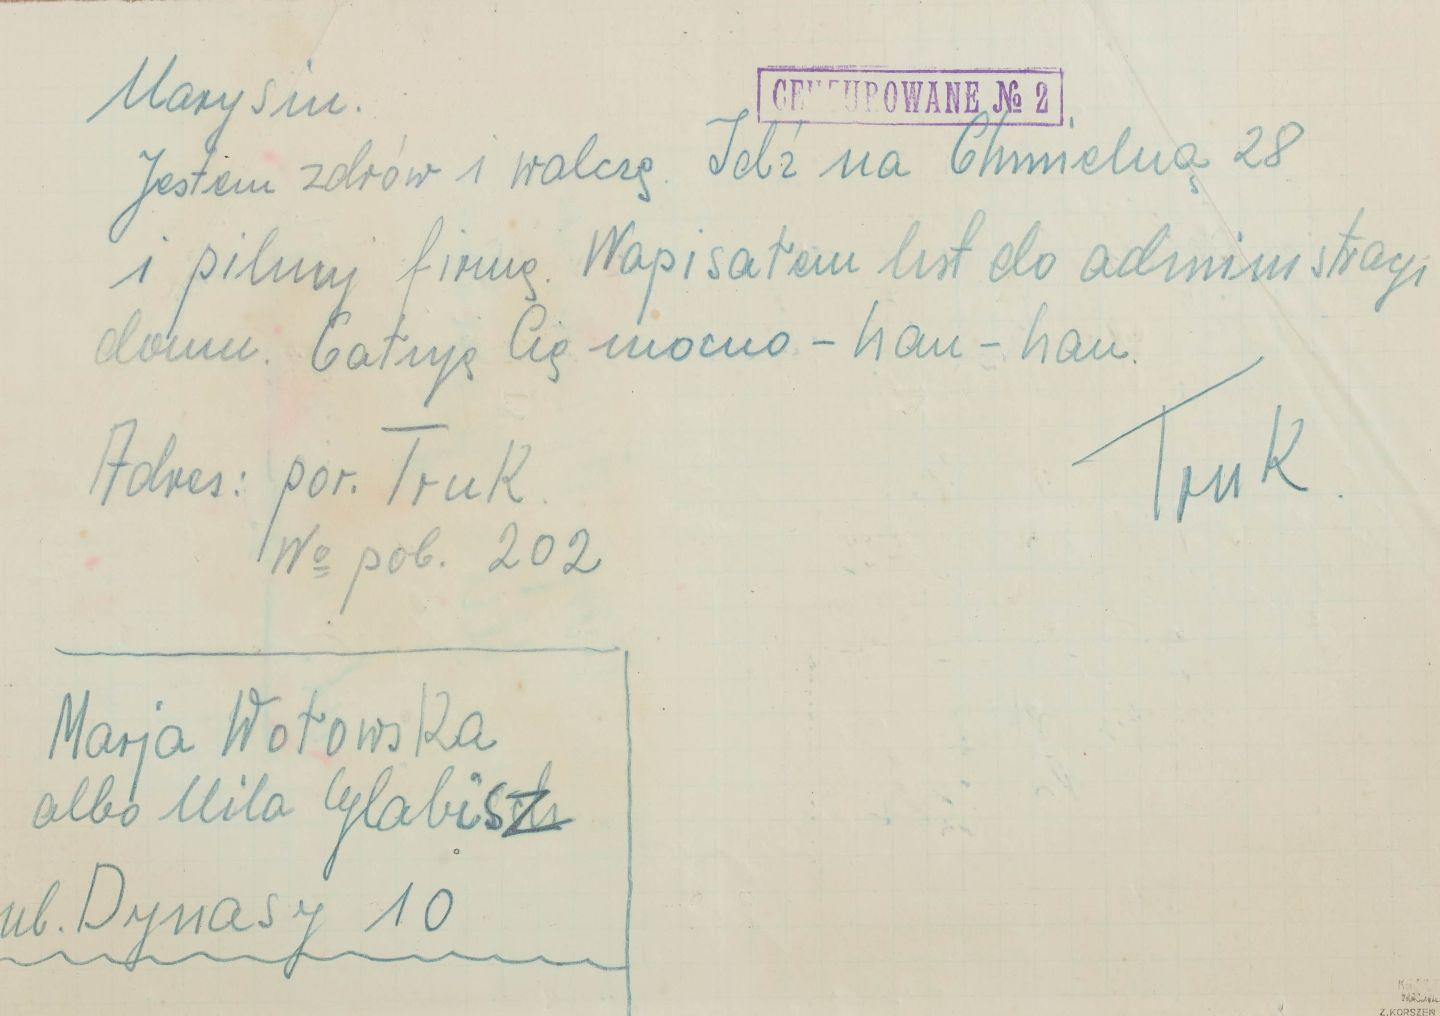 CENZUROWANE № 2
Marysiu.
Jestem zdrów i walczę. Idź na Chmielną 28
i pilnuj firmę. Napisałem list do administracji
domu. Całuję Cię mocno – hau – hau.
Truk.
Adres: por. Truk.
№ pob. 202
Marja Wołowska
albo Mila Cylabisz
ul. Dynasy 10
Z. KORSZEŃ